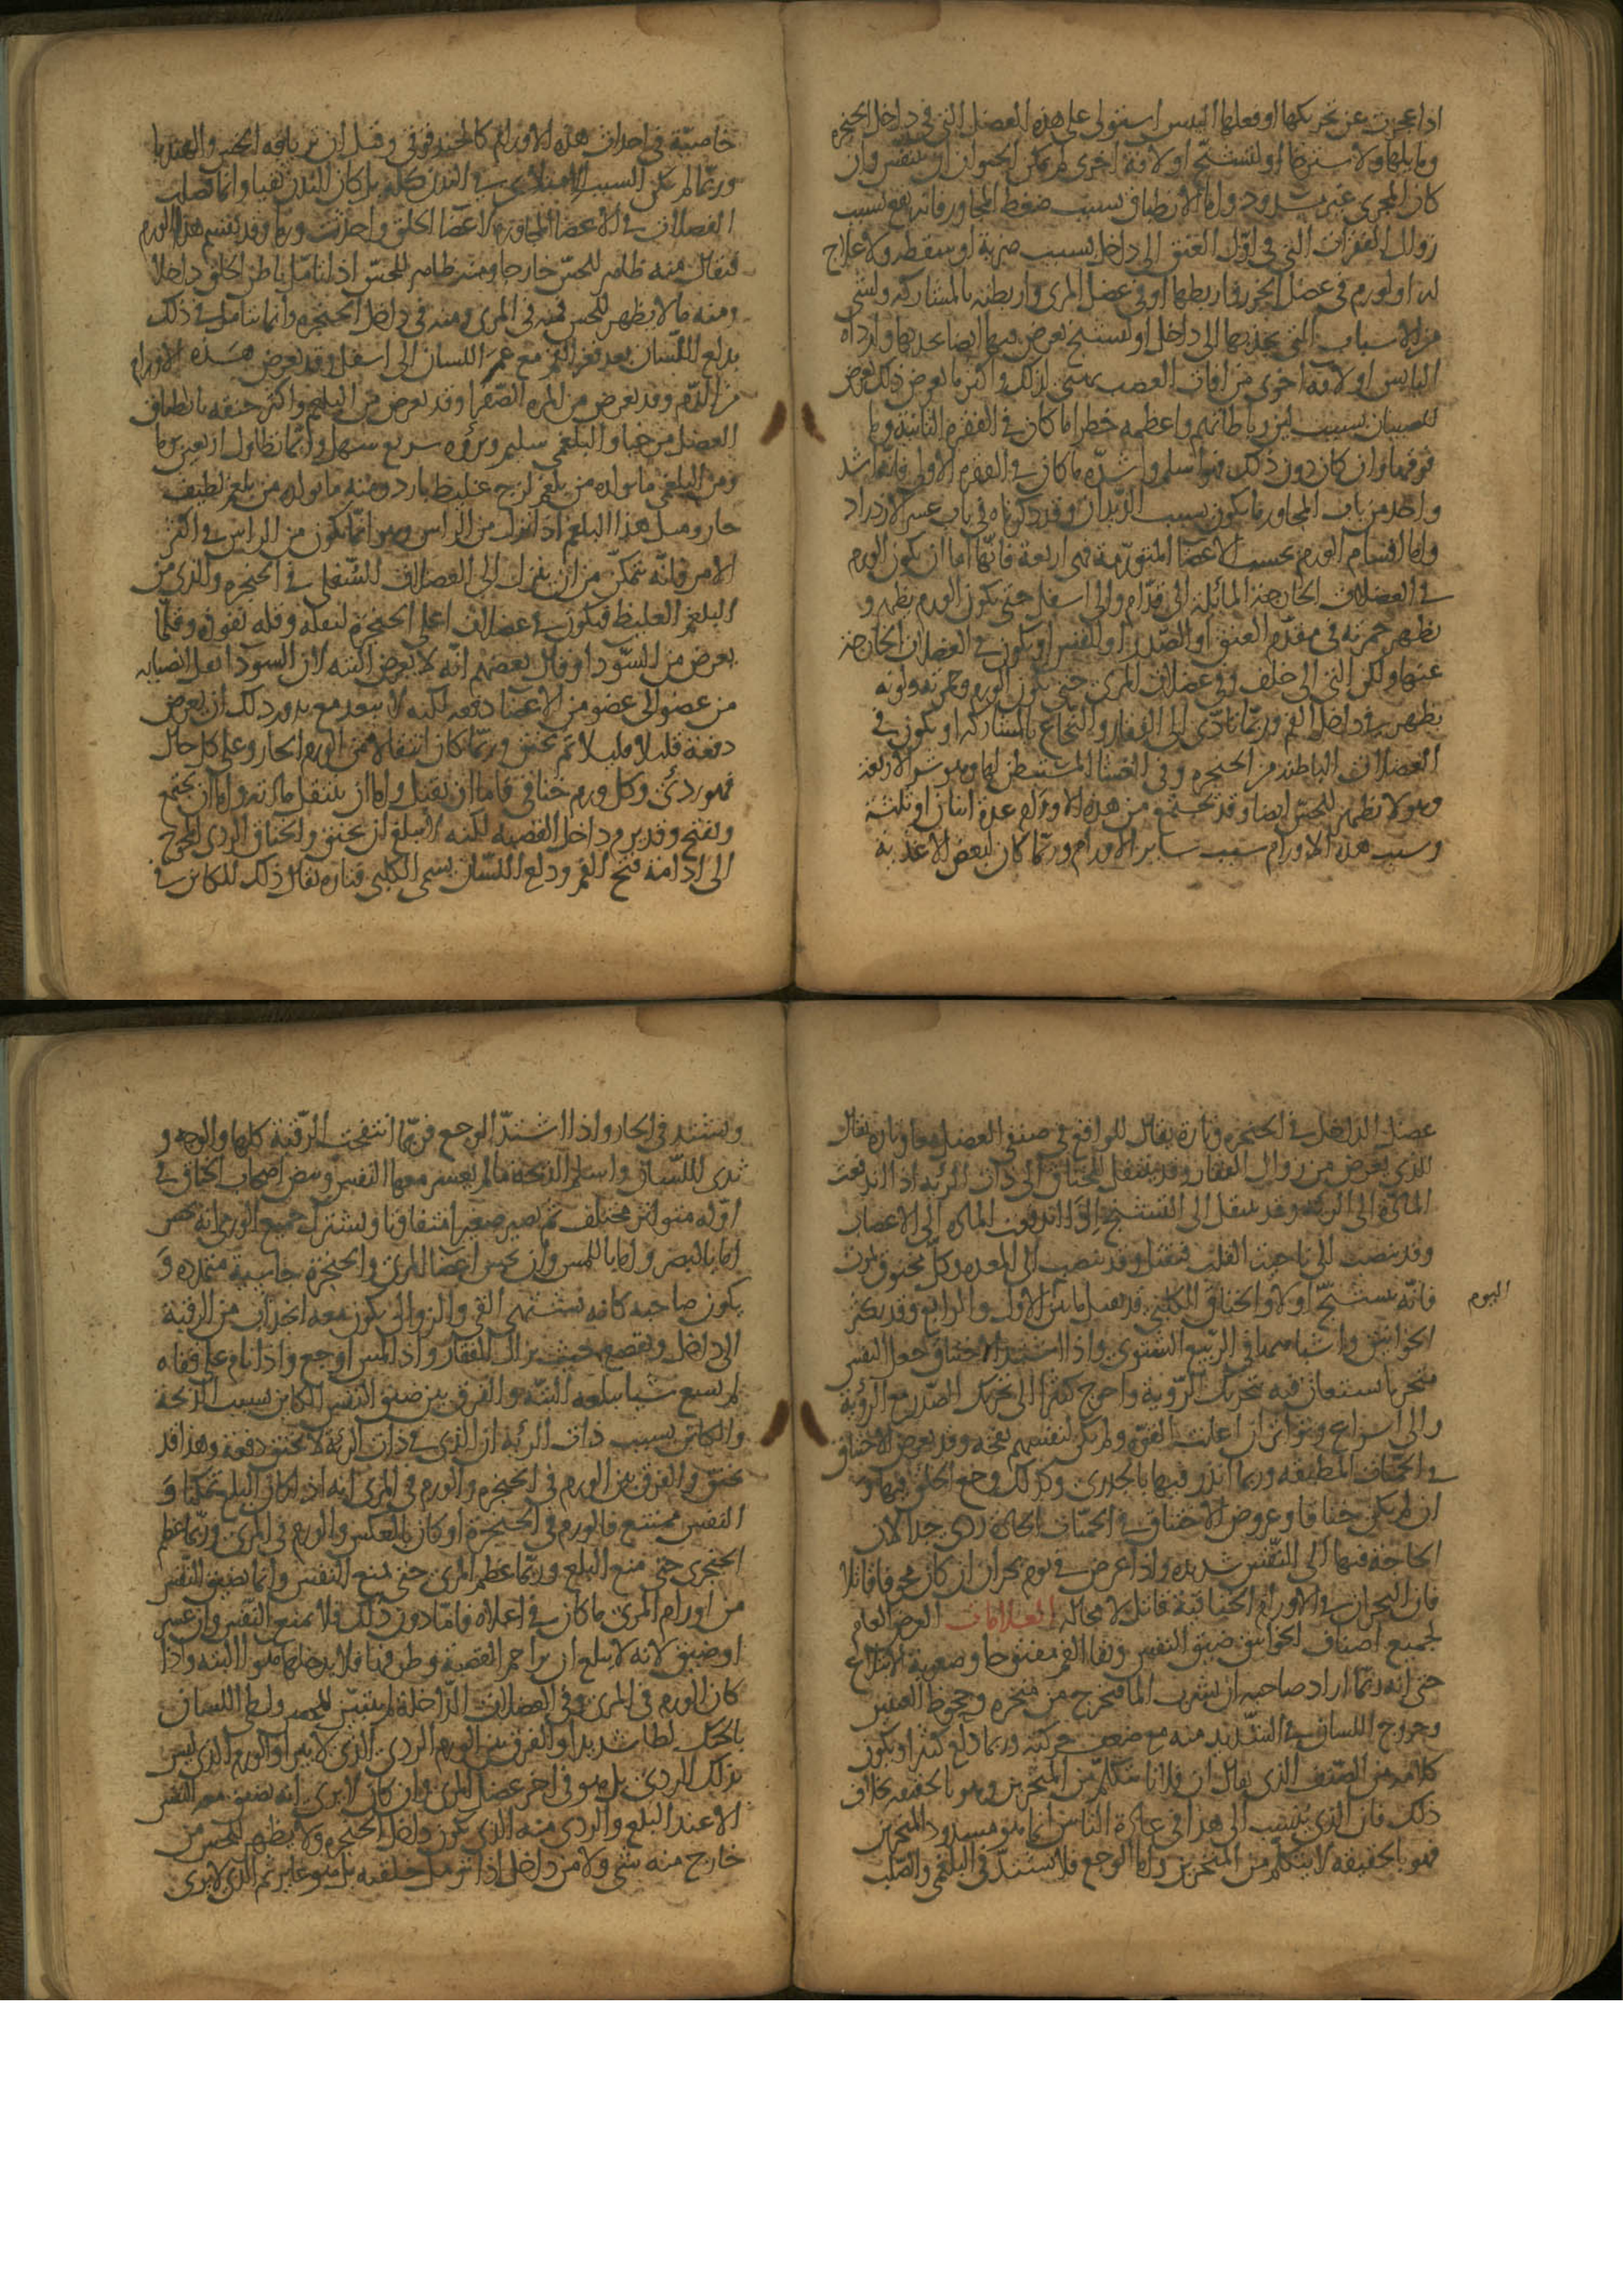 اذا عجزت عن تحريكها او فعلها اليبس استولى على هذه العضل التى فى داخل الحنجرة
وما يليها ولاسترخا او لتشنج او لافة اخرى لم يمكن الحيوان ان يتنفس وان
كان المجرى غير مسدود واما الانطباق بسبب ضغط المجاور فانه يقع بسبب
زوال الفقرات التى فى اول العنق الى داخل بسبب ضربة او سقطة ولا علاج
له او لورم فى عضل الخرزة واربطها او فى عضل المرى واربطته بالمشاركة ولشى
من الاسباب التى يجذبها الى داخل او لتشنج يعرض فيها ايضا يجذبها وارداه
اليابس او لافة اخرى من افات العصب يهيئ لذلك واكثر ما يعرض ذلك يعرض
للصبيان بسبب لين رباطاتهم واعظمه خطرا ما كان فى الفقرة الثانية وما
فوقها وان كان دون ذلك فهو اسلم واشده ما كان فى الفقرة الاولى فانه اشد
واحد من باب المجاور ما يكون بسبب الديدان وقد ذكرناه فى باب عسر الازدراد
واما اقسام الورم بحسب الاعضا المتورمة فهى اربعة فانها اما ان يكون الورم
فى العضلات الخارجة المائلة الى قدام والى اسفل حتى يكون الورم يظهر و
تظهر حمرته فى مقدم العنق او الصدر او القس او يكون فى العضلات الخارجة
عنها ولكن التى الى خلف وفى عضلات المرى حتى يكون الورم وحمرته ولونه
يظهر فى داخل الفم وربما تادى الى الفقار والنخاع بالمشاركة او يكون فى
العضلات الباطنة من الحنجرة وفى الغشا المستبطن لها وهو شر الاربعة
وهو لا يظهر للحس ايضا وقد يجتمع من هذه الاورام عدة اثنان او ثلثة
وسبب هذه الاورام سبب ساير الاورام وربما كان لبعض الاغذية
خاصية فى احداث هذه الاورام كالحندقوقى وقيل ان ترياقه الخس والهندبا
وربما لم يكن السبب الامتلا فى البدن كله بل كان البدن نقيا وانما فضلت
الفضلات فى الاعضا المجاورة لاعضا الحلق واحدثت ورما وقد يقسم هذا الورم
فيقال منه ظاهر للحس خارجا ومنه ظاهر للحس اذا تامل باطن الحلق داخلا
ومنه ما لا يظهر للحس فمنه فى المرى ومنه فى داخل الحنجرة وانما يتامل فى ذلك
بدلع اللسان بعد فغر الفم مع غمز اللسان الى اسفل وقد يعرض هذه الاورام
من الدم وقد يعرض من المرة الصفرا وقد يعرض من البلغم واكثر خنقه بانطباق
العضل مرخيا والبلغمى سليم وبرؤه سريع سهل وانما تطاول اربعين يوما
ومن البلغمى ما يولده من بلغم لزج غليظ بارد ومنه ما يولده من بلغم لطيف
حار ومثل هذا البلغم اذا نزل من الراس وهو انما يكون من الراس فى اكثر
الامر فانه يتمكن من ان ينزل الى العضلات السفلى فى الحنجرة والذى من
البلغم الغليظ فيكون فى عضلات اعلى الحنجرة لثقله وقلة نفوذه وقلما
يعرض من السودا وقال بعضهم انه لا يعرض البتة لان السودا يقل انصبابه
من عضو الى عضو من الاعضا دفعة لكنه لا يبعد مع ندور ذلك ان يعرض
دفعة قليلا قليلا ثم يخنق وربما كان انتقالا من الورم الحار وعلى كل حال
فهو ردى وكل ورم خناقى فاما ان يقتل واما ان ينتقل مادته واما ان يجتمع
ويفتح وقد يرم داخل القصبة لكنه لا يبلغ ان يخنق والخناق الردى المحوج
الى ادامة فتح الفم ودلع اللسان يسمى الكلبى فتارة يقال ذلك للكائن فى
عضل الداخل فى الحنجرة وتارة يقال للواقع فى صنفى العضل معا وتارة يقال
للذى يعرض من زوال الفقار وقد ينتقل الخناق الى ذات الرئة اذا اندفعت
المادة الى الرئة وقد ينتقل الى التشنج اذا اندفعت المادة الى الاعصاب
وقد ينصب الى ناحية القلب فيقتل وقد ينصب الى المعدة وكل مخنوق يموت
فانه يتشنج اولا والخناق الكلبى قد يقتل ما بين الاول والرابع وقد يكثر
اليوم
الخوانيق واشباهها فى الربيع الشتوى واذا اشتد الاختناق جعل النفس
منخريا يستعان فيه بتحريك الروية واحوج كثيرا الى تحريك الصدر مع الروية
والى اسراع وتواتر ان اعانت القوة ولم يكن لنفسهم نفخة وقد يعرض الاختناق
فى الحميات المطبقة وربما انذر فيها بالجدرى وكذلك وجع الحلق فيها و
ان لم يكن خناقا وعروض الاختناق فى الحميات الحادة ردى جدا لان
الحاجة فيها الى التنفس شديدة واذا عرض فى يوم بحران كان مخوفا قاتلا
فان البحران فى الاورام الخناقية قاتل لا محالة العلامات العرض العام
لجميع اصناف الخوانيق ضيق النفس وبقا الفم مفتوحا وصعوبة الابتلاع
حتى انه ربما اراد صاحبه ان يشرب الما فيخرج من منخره وجحوظ العينين
وخروج اللسان فى الشديد منه مع ضعف حركته وربما دلع كثيرا ويكون
كلامه من الصنف الذى يقال ان فلانا يتكلم من المنخرين وهو بالحقيقة بخلاف
ذلك فان الذى ينسب الى هذا فى عادة الناس انما هو مسدود المنخرين
فهو بالحقيقة لا يتكلم من المنخرين واما الوجع فلا يشتد فى البلغمى والصلب
ويشتد فى الحار واذا اشتد الوجع فربما انتفخت الرقبة كلها والوجه و
تدلى اللسان واسلم الذبحة ما لم يعسر معها النفس ونبض اصحاب الخناق فى
اوله متواتر مختلف ثم يصير صغيرا متفاوتا ويشترك جميع الورمى انه يحس
اما بالبصر واما باللمس وان يحس اعضا المرى والحنجرة جاسية متمددة و
يكون صاحبه كانه يشتهى القى والزوالى يكون معه انجذاب من الرقبة
الى داخل وتقصع حيث يزال الفقار واذا لمس اوجع واذا نام على قفاه
لم يسع شيا يبلعه البتة والفرق بين ضيق النفس الكائن بسبب الذبحة
والكائن بسبب ذات الرئة ان الذى فى ذات الرئة لا يخنق دفعة وهذا قد
يخنق والفرق بين الورم فى الحنجرة والورم فى المرى انه اذا كان البلع ممكنا و
النفس ممتنع فالورم فى الحنجرة او كان بالعكس فالورم فى المرى وربما عظم
الحنجرى حتى منع البلع وربما عظم المرى حتى منع التنفس وانما يضيق النفس
من اورام المرى ما كان فى اعلاه فاما دون ذلك فلا يمنع النفس وان عسر
او ضيق لانه لا يبلغ ان يزاحم القصبة وطرفها فلا يدخلها هوا البتة واذا
كان الورم فى المرى وفى العضلات الداخلة لم يتبين للحس ولطا اللسان
بالحنك لطا شديدا والفرق بين الورم الردى الذى لا يبرا والورم الذى ليس
بذلك الردى بل هو فى اخر عضل المرى وان كان لا يرى انه لا يضيق معه النفس
الا عند البلع والردى منه الذى يكون داخل الحنجرة ولا يظهر للحس من
خارج منه شى ولا من داخل اذا تومل حلقه بل هو غاير ثم الذى لا يرى